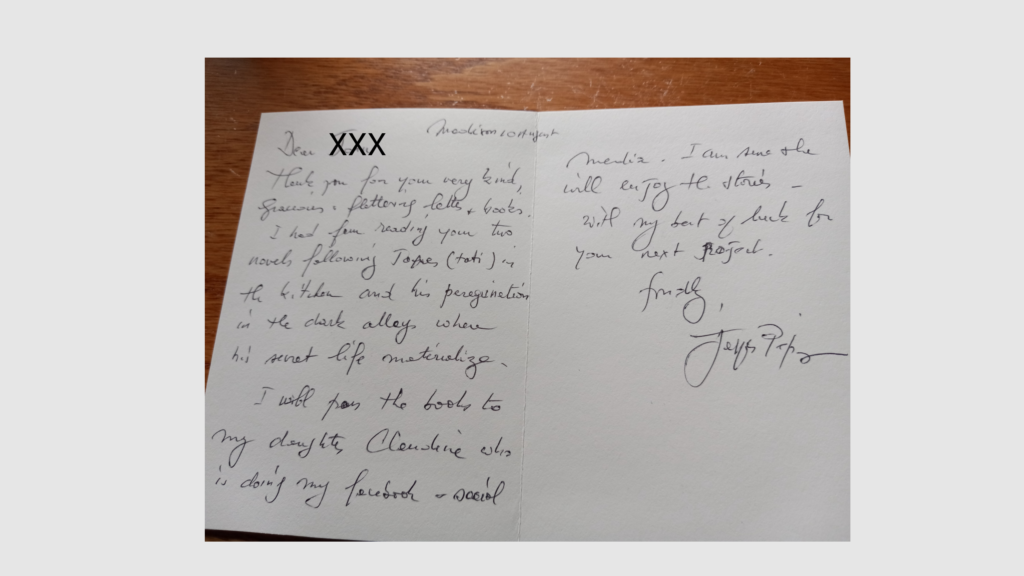 Madison 10 August
Dear XXX
Thank you for your very kind,
Gracious & flattering letter & books.
I had fun reading your two
novels following Jaques (tati) in
the kitchen and his peregrination
in the dark alleys where
his secret life materialize.
I will pass the books to
my daughter Claudine who
is doing my facebook & social
media. I am sure she
will enjoy the stories -
with my best of luck for
your next Project.